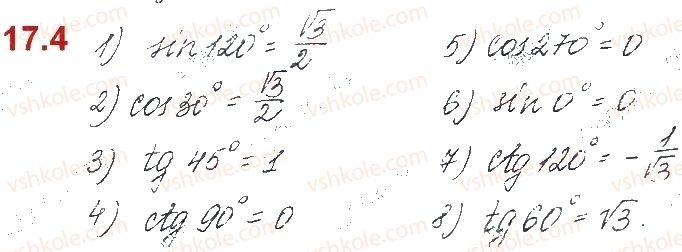 17.4
1) sin 120° = √3/2
2) cos 30° = √3/2
3) tg 45° = 1
4) ctg 90° = 0
5) cos 270° = 0
6) sin 0° = 0
7) ctg 120° = - 1/√3
8) tg 60° = √3.
vshkole.com